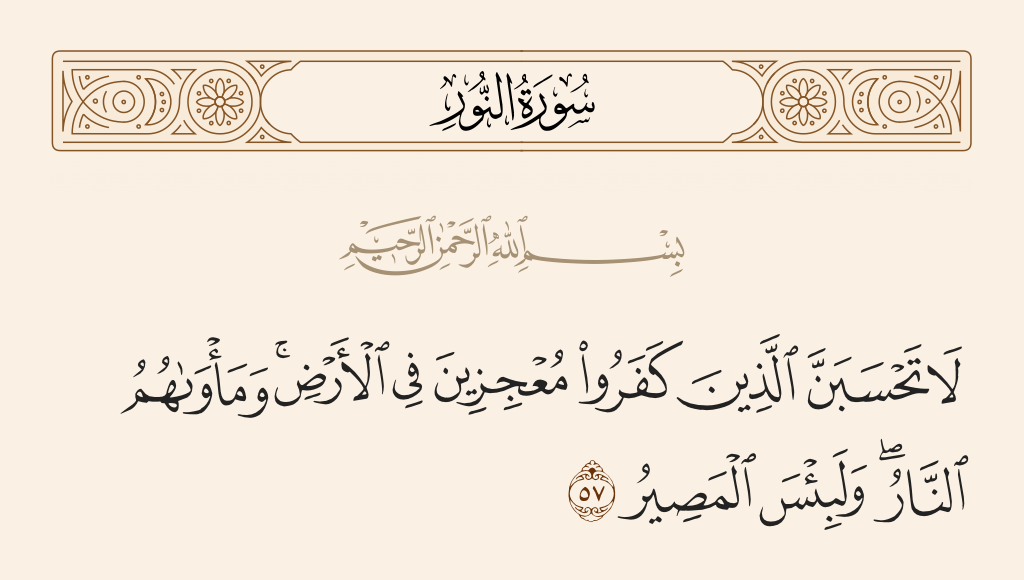 سُورَةُ النُّورِ
بِسْمِ ٱللَّهِ ٱلرَّحْمَٰنِ ٱلرَّحِيمِ
لَا تَحْسَبَنَّ ٱلَّذِينَ كَفَرُوا۟ مُعْجِزِينَ فِى ٱلْأَرْضِ ۚ وَمَأْوَىٰهُمُ
ٱلنَّارُ ۖ وَلَبِئْسَ ٱلْمَصِيرُ ٥٧